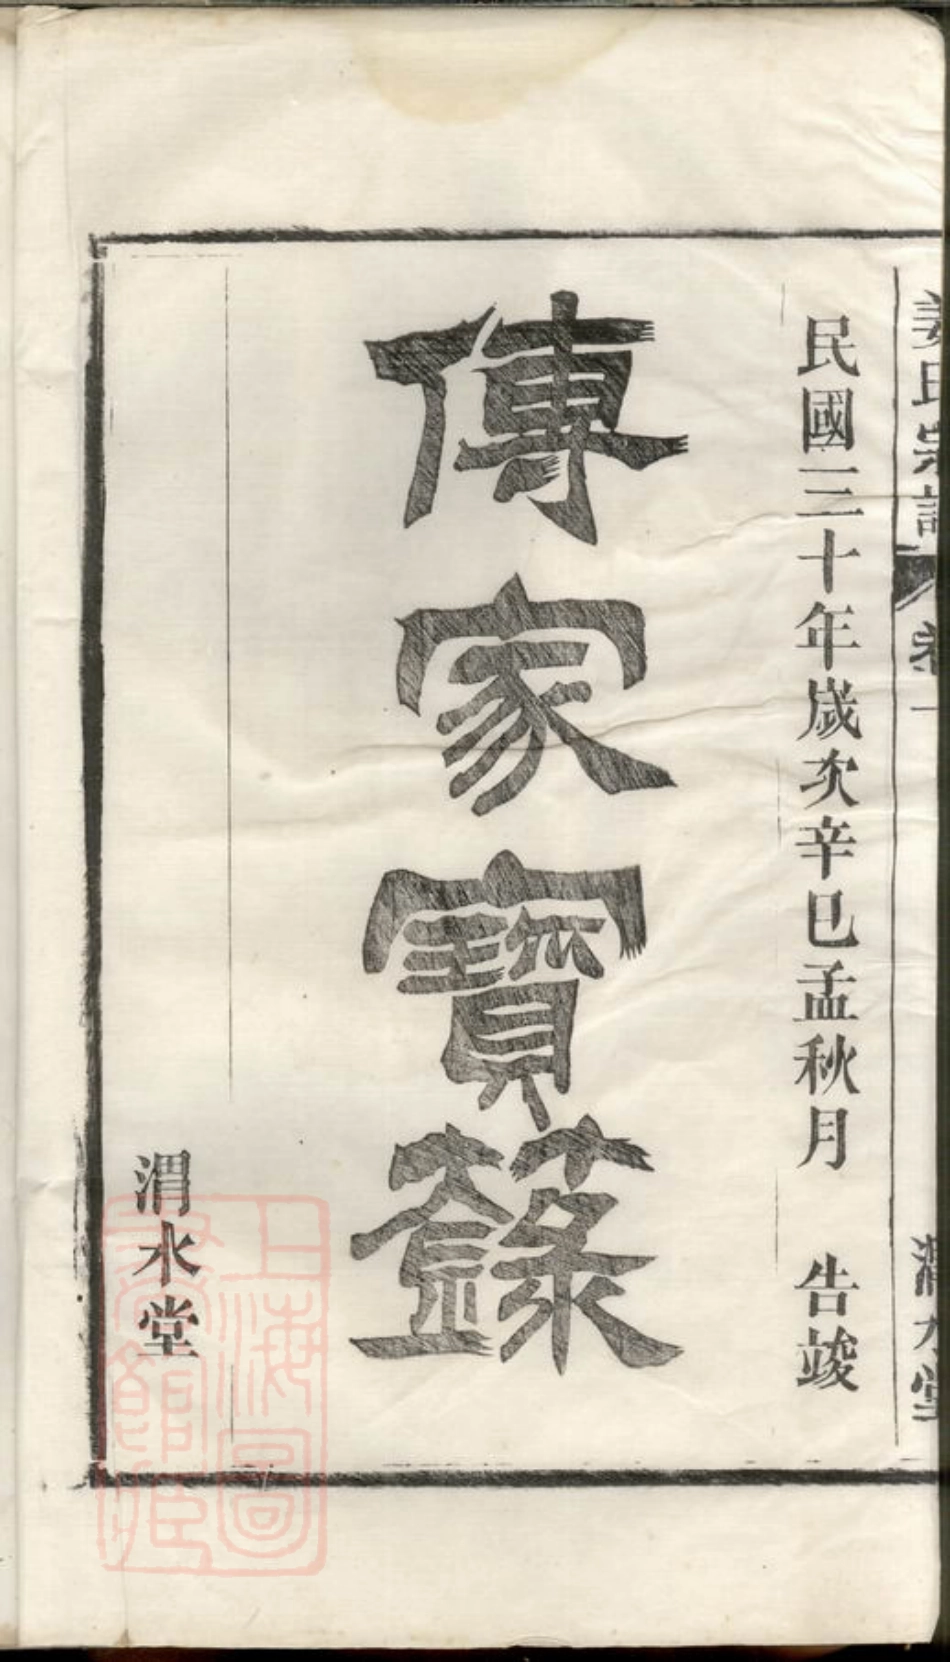 姜氏宗譜 卷一 渭水堂
民國三十年歲次辛巳孟秋月 告竣
傳家寶籙
渭水堂
上海圖書館藏